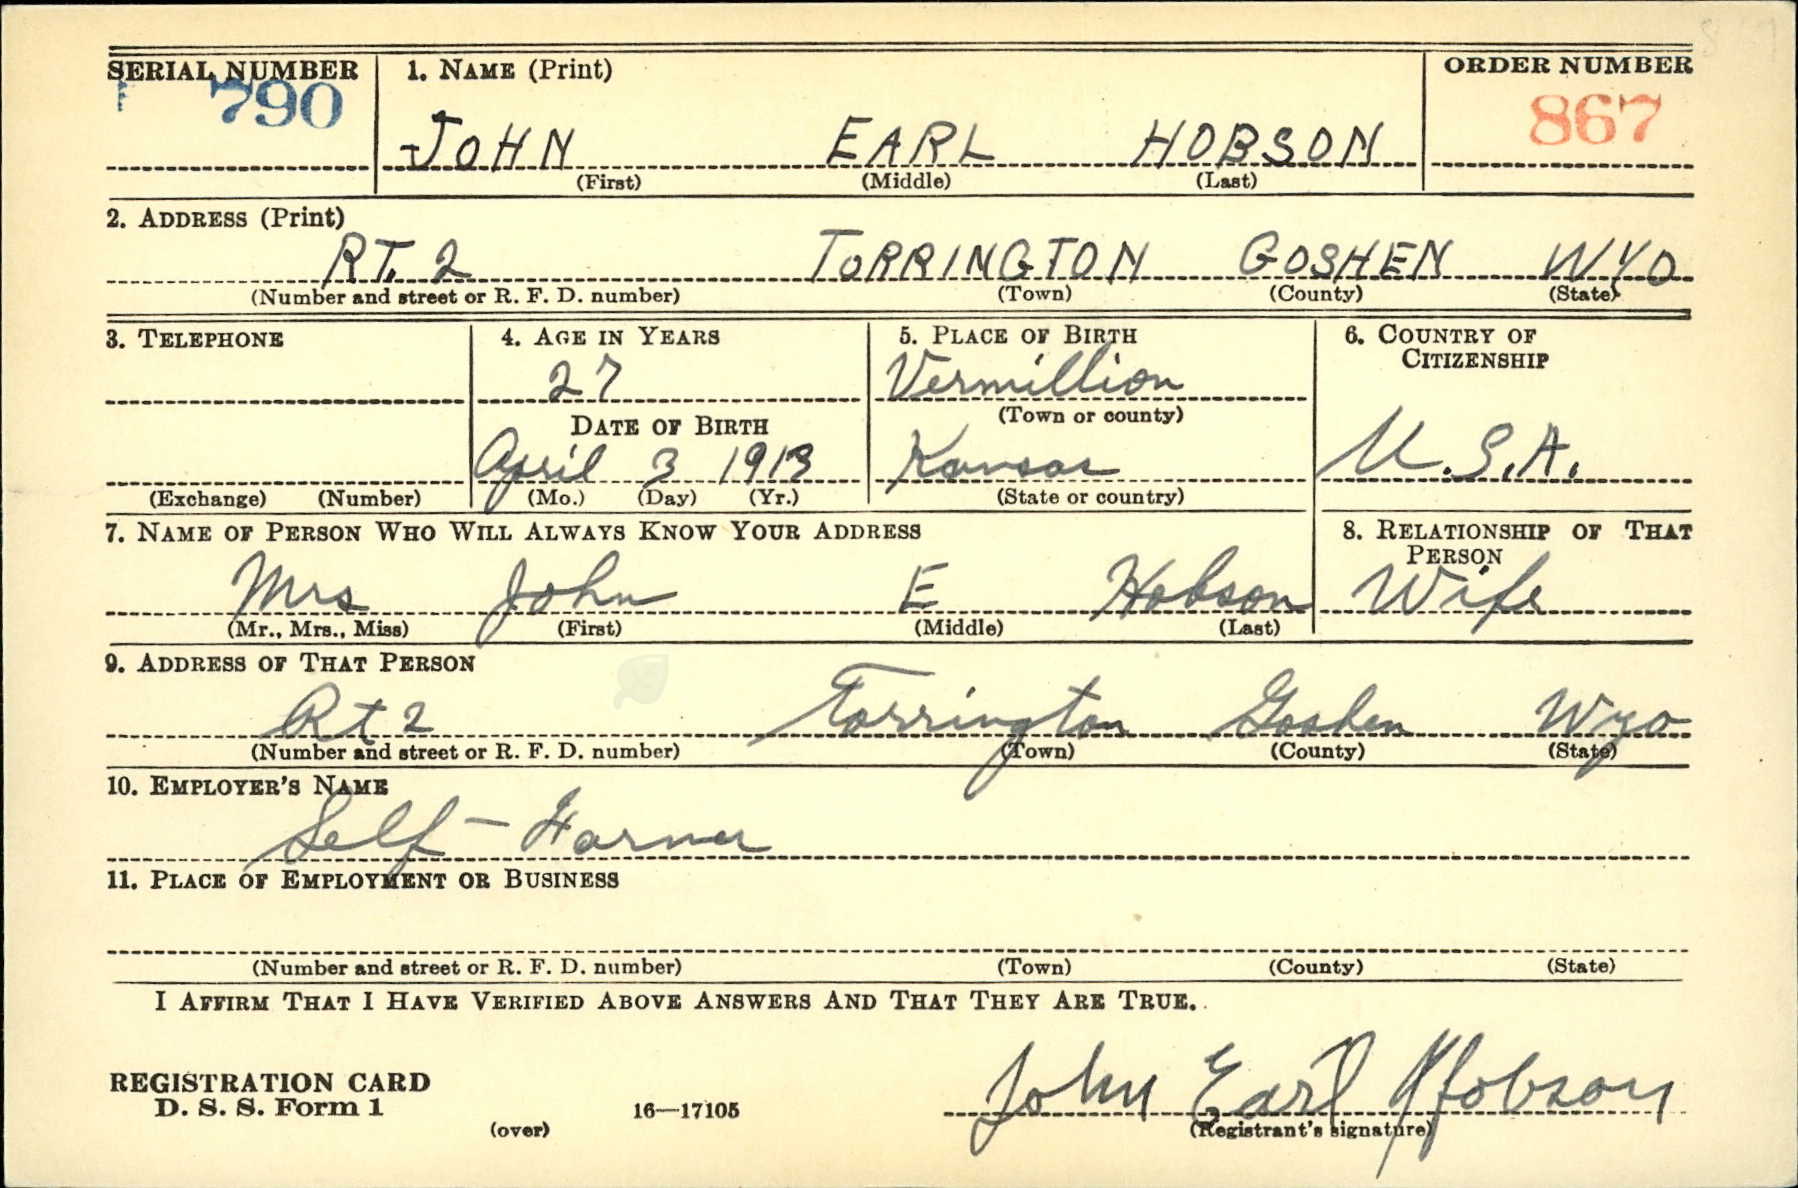 SERIAL NUMBER 1. NAME (Print) ORDER NUMBER
790 867
JOHN EARL HOBSON
(First) (Middle) (Last)
2. ADDRESS (Print)
RT. 2 TORRINGTON GOSHEN WYO
(Number and street or R. F. D. number) (Town) (County) (State)
3. TELEPHONE 4. AGE IN YEARS 5. PLACE OF BIRTH 6. COUNTRY OF
CITIZENSHIP
27 Vermillion
(Town or county)
DATE OF BIRTH
April 3 1913 Kansas U.S.A.
(Exchange) (Number) (Mo.) (Day) (Yr.) (State or country)
7. NAME OF PERSON WHO WILL ALWAYS KNOW YOUR ADDRESS 8. RELATIONSHIP OF THAT
PERSON
Mrs John E Hobson Wife
(Mr., Mrs., Miss) (First) (Middle) (Last)
9. ADDRESS OF THAT PERSON
Rt 2 Torrington Goshen Wyo
(Number and street or R. F. D. number) (Town) (County) (State)
10. EMPLOYER'S NAME
Self - Farmer
11. PLACE OF EMPLOYMENT OR BUSINESS
(Number and street or R. F. D. number) (Town) (County) (State)
I AFFIRM THAT I HAVE VERIFIED ABOVE ANSWERS AND THAT THEY ARE TRUE.
John Earl Hobson
REGISTRATION CARD
D. S. S. Form 1 16—17105
(over) (Registrant's signature)